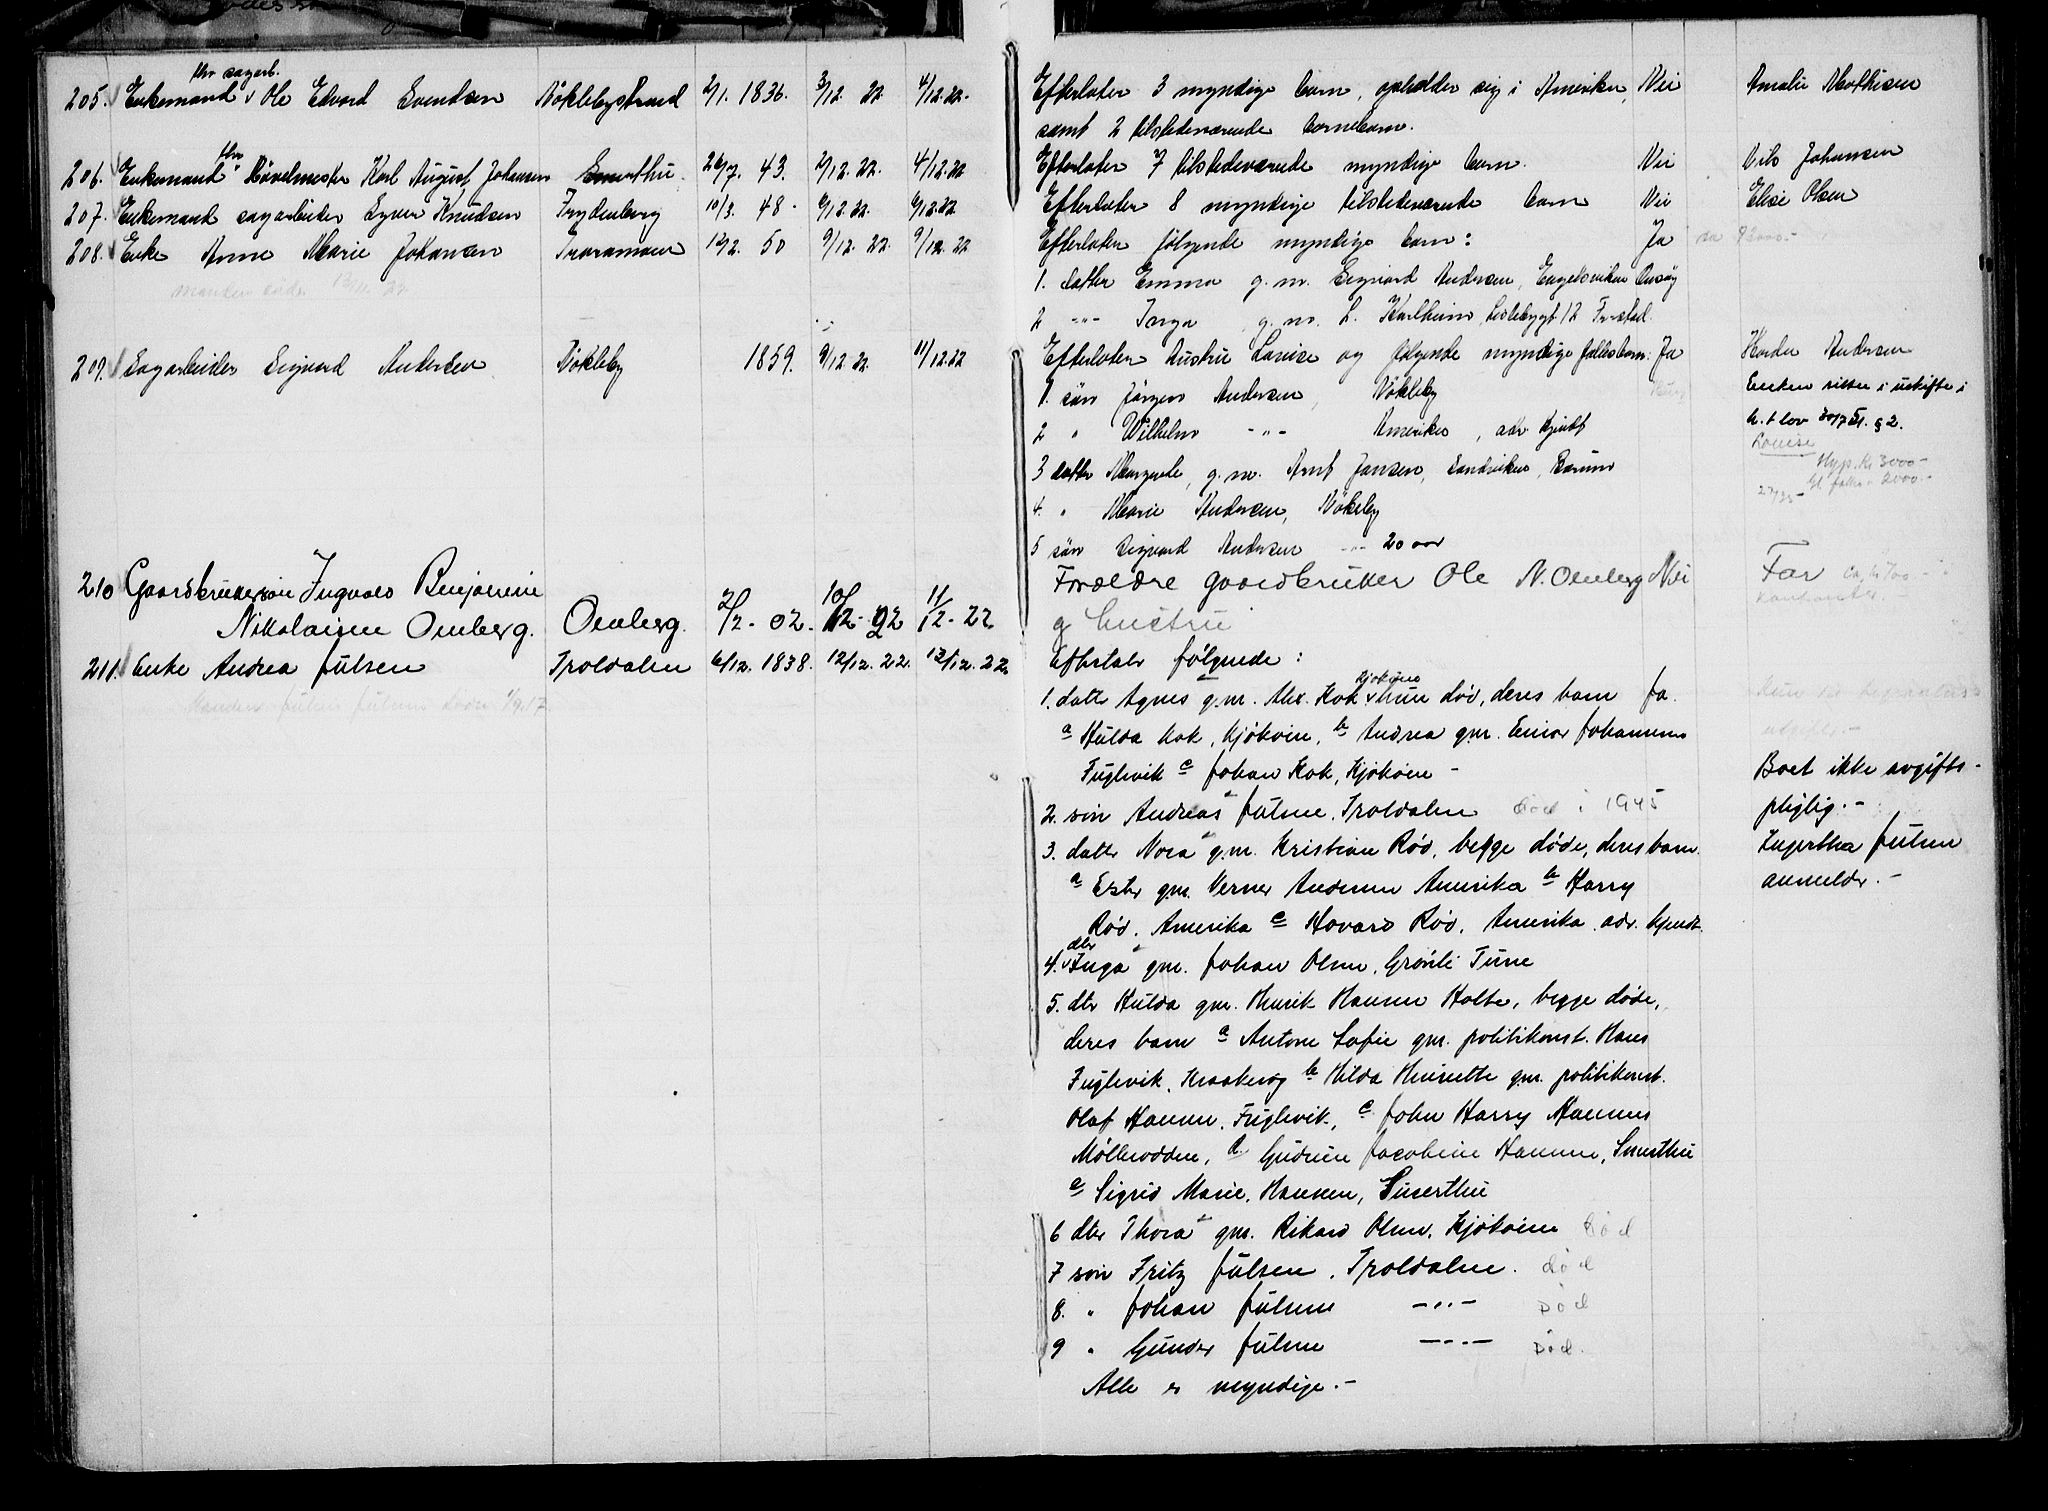 205. Enkemand fhv sagarb. Ole Edvard Svendsen Nökelbystrand 2/1. 1836. 3/12. 22 4/12. 22. Efterlater 3 myndige barn, opholder sig i Amerika, Nei Amalie Mathisen
samt 2 tilstedeværende barnebarn.
206. Enkemand fhv Hövelmester Karl August Johansen Smerthu 26/7. 43. 2/12. 22. 4/12. 22 Efterlater 7 tilstedeværende myndige barn. Nei Nils Johansen
207. Enkemand sagarbeider Syver Knudsen Frydenberg 10/3. 48 6/12. 22. 6/12. 22 Efterlater 8 myndige tilstedeværende barn Nei Elise Olsen
208. Enke Anne Marie Johansen Traramoen 12/2. 50 9/12. 22. 9/12. 22 Efterlater følgende myndige barn: Ja
1. datter Emma g.m. Sigvard Andersen, Engelsviken Onsöy
2 -"- Inga g.m. L. Karlheim, Lislebygt 12 Fr.stad.
209. Sagarbeider Sigvard Andersen Nökleby 1859. 9/12. 22. 11/12. 22 Efterlater hustru Louise og følgende myndige fellesbarn: Ja Haldor Andersen
1. sön Jörgen Andersen, Nökleby Enken sitter i uskifte i
2 " Wilhelm -"- Amerika, adr. kjendt h. t. lov 30/7 51. § 2.
Louise
3 datter Margrethe, g.m. Arnt Jansen, Sandviken, Bærum Hyp. kr 3000-
4. " Marie Andersen, Nökleby
5 sön Sigvard Andersen -"- 20 aar
210 Gaardbrukersøn Ingvald Benjamin Forældre gaardbruker Ole N. Omberg Nei Far
Nikolaisen Omberg. Omberg. 2/2 - 02. 10/12 - 22 11/12 - 22 og hustru
211. Enke Andrea Julsen Troldalen 6/12. 1838. 12/12. 22. 13/12. 22 Efterlater følgende:
1. datter Agnes g.m. Alex. Kok Kjøkøen hun død, deres barn Ja.
a Hulda Kok, Kjøkøen, b Andrea gm. Einar Johannesen
Fuglevik c Johan Kok, Kjøkøen - Boet ikke avgifts-
2. søn Andreas Julsen, Troldalen død i 1945 pligtig.-
3. datter Nora g.m. Kristian Rød, begge døde, deres barn. Ingertha Julsen
a Ester gm. Verner Andersen Amerika b Harry anmelder.-
Rød. Amerika c Havard Rød. Amerika adr. kjendt.
4. dtr Inga gm. Johan Olsen, Grønli Tune
5. dtr Hulda gm. Henrik Hansen Holte, begge døde,
deres barn a Antone Sofie gm. politikonst. Hans
Fuglevik, Kraakerøy b Hilda Henriette gm. politikonst.
Olaf Hansen, Fuglevik, c John Harry Hansen
Mølleodden, d Gudrun Jacobine Hansen, Smerthu
e Sigrid Marie Hansen, Smerthu
6 dtr Thora gm. Rikard Olsen, Kjøkøen død
7 søn Fritz Julsen, Troldalen. død
8. " Johan Julsen -"- død
9 " Gunder Julsen -"- død.
Alle er myndige.-